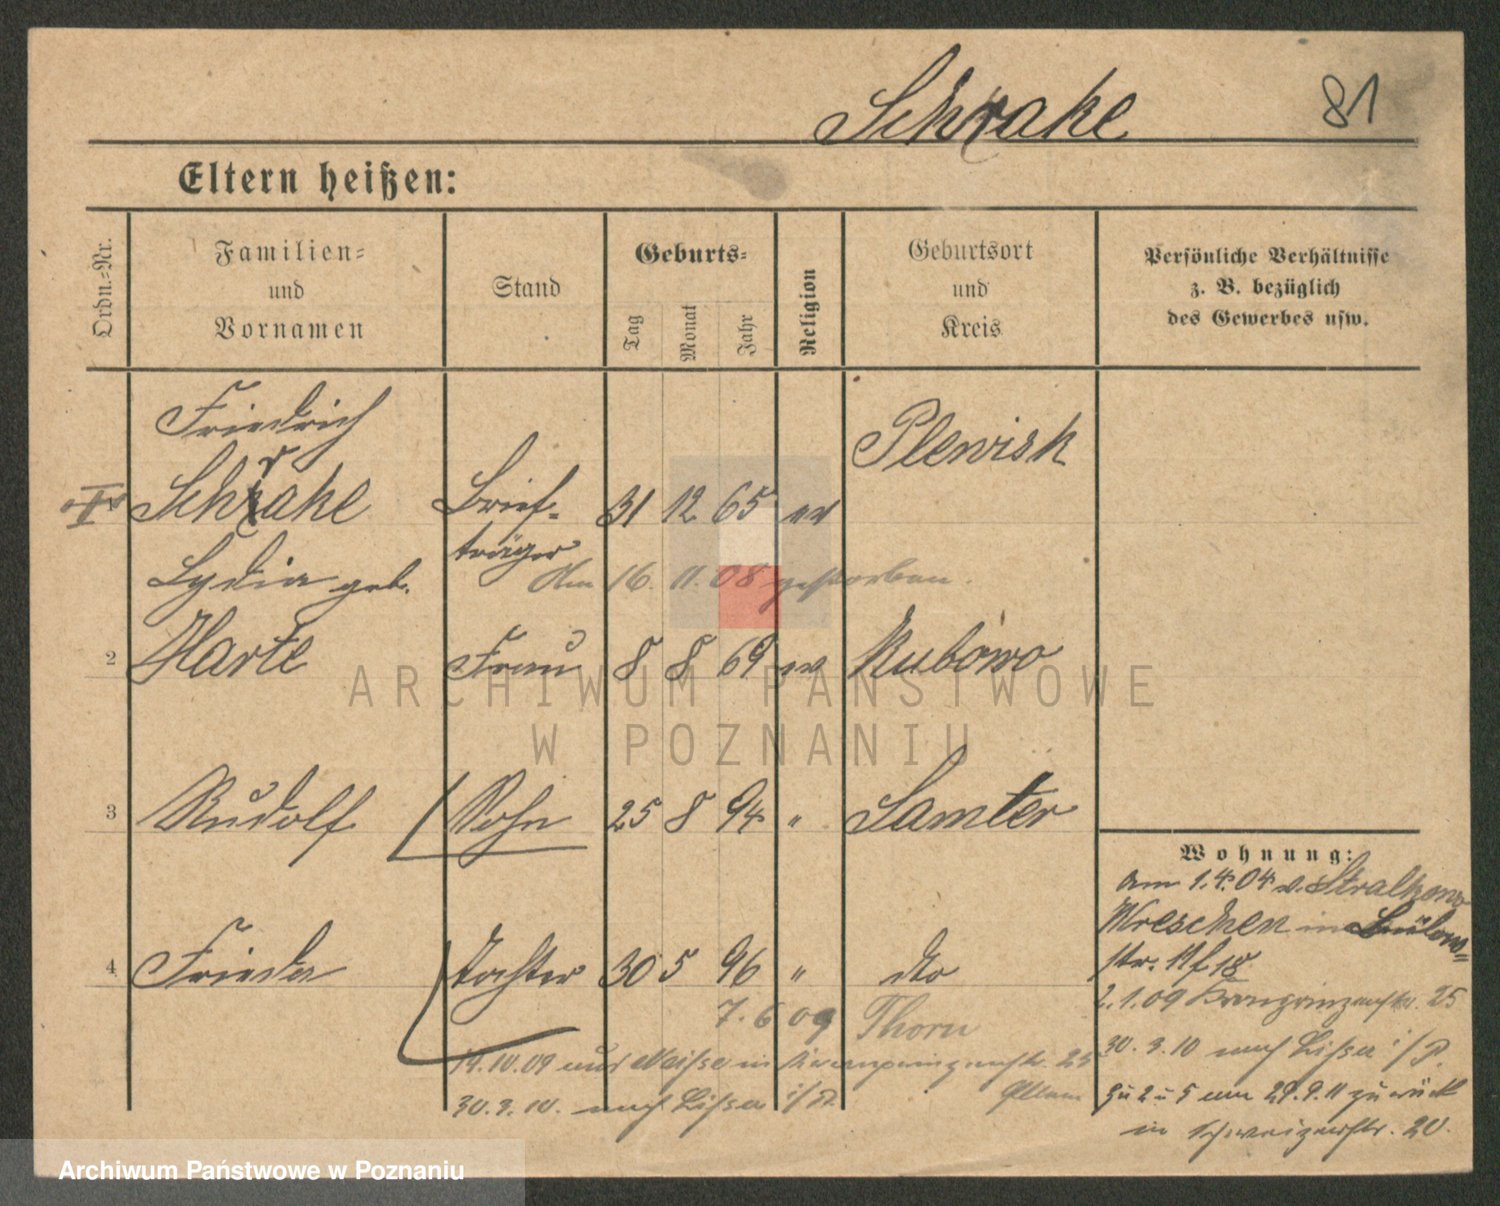 Schrake
81
Eltern heißen:
Ordn.-Nr.
Familien-
und
Vornamen
Stand
Geburts-
Tag
Monat
Jahr
Religion
Geburtsort
und
Kreis
Persönliche Verhältnisse
z. B. bezüglich
des Gewerbes usw.
Friedrich
Schrake
Brief-
träger
31 12 65 ev
Plewisk
Lydia geb.
Am 16. 11. 08 gestorben.
2 Harte Frau 8 8 69 ev Rubowo
3 Rudolf Sohn 25 8 94 " Samter
4 Frieda Tochter 30 5 96 " dto
7. 6 09 Thorn
19.10.09 aus Neisse in Kronprinzenstr. 25
30.3.10. nach Lissa i/P.
Wohnung:
am 1.4.04 v. Stralkowo
Wreschen in Bülow-
str. 18
2.1.09 Kronprinzenstr. 25
30.3.10 nach Lissa i/P
zu 2 u 5 am 29.9.11 zurück
in Schweizerstr. 20.
ARCHIWUM PAŃSTWOWE
W POZNANIU
Archiwum Państwowe w Poznaniu